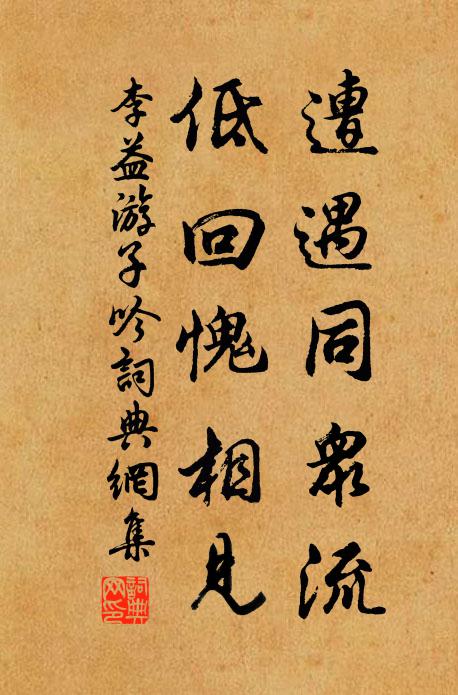 遭遇同衆流
低回愧相見
李益游子吟詞典網集
詞典網印